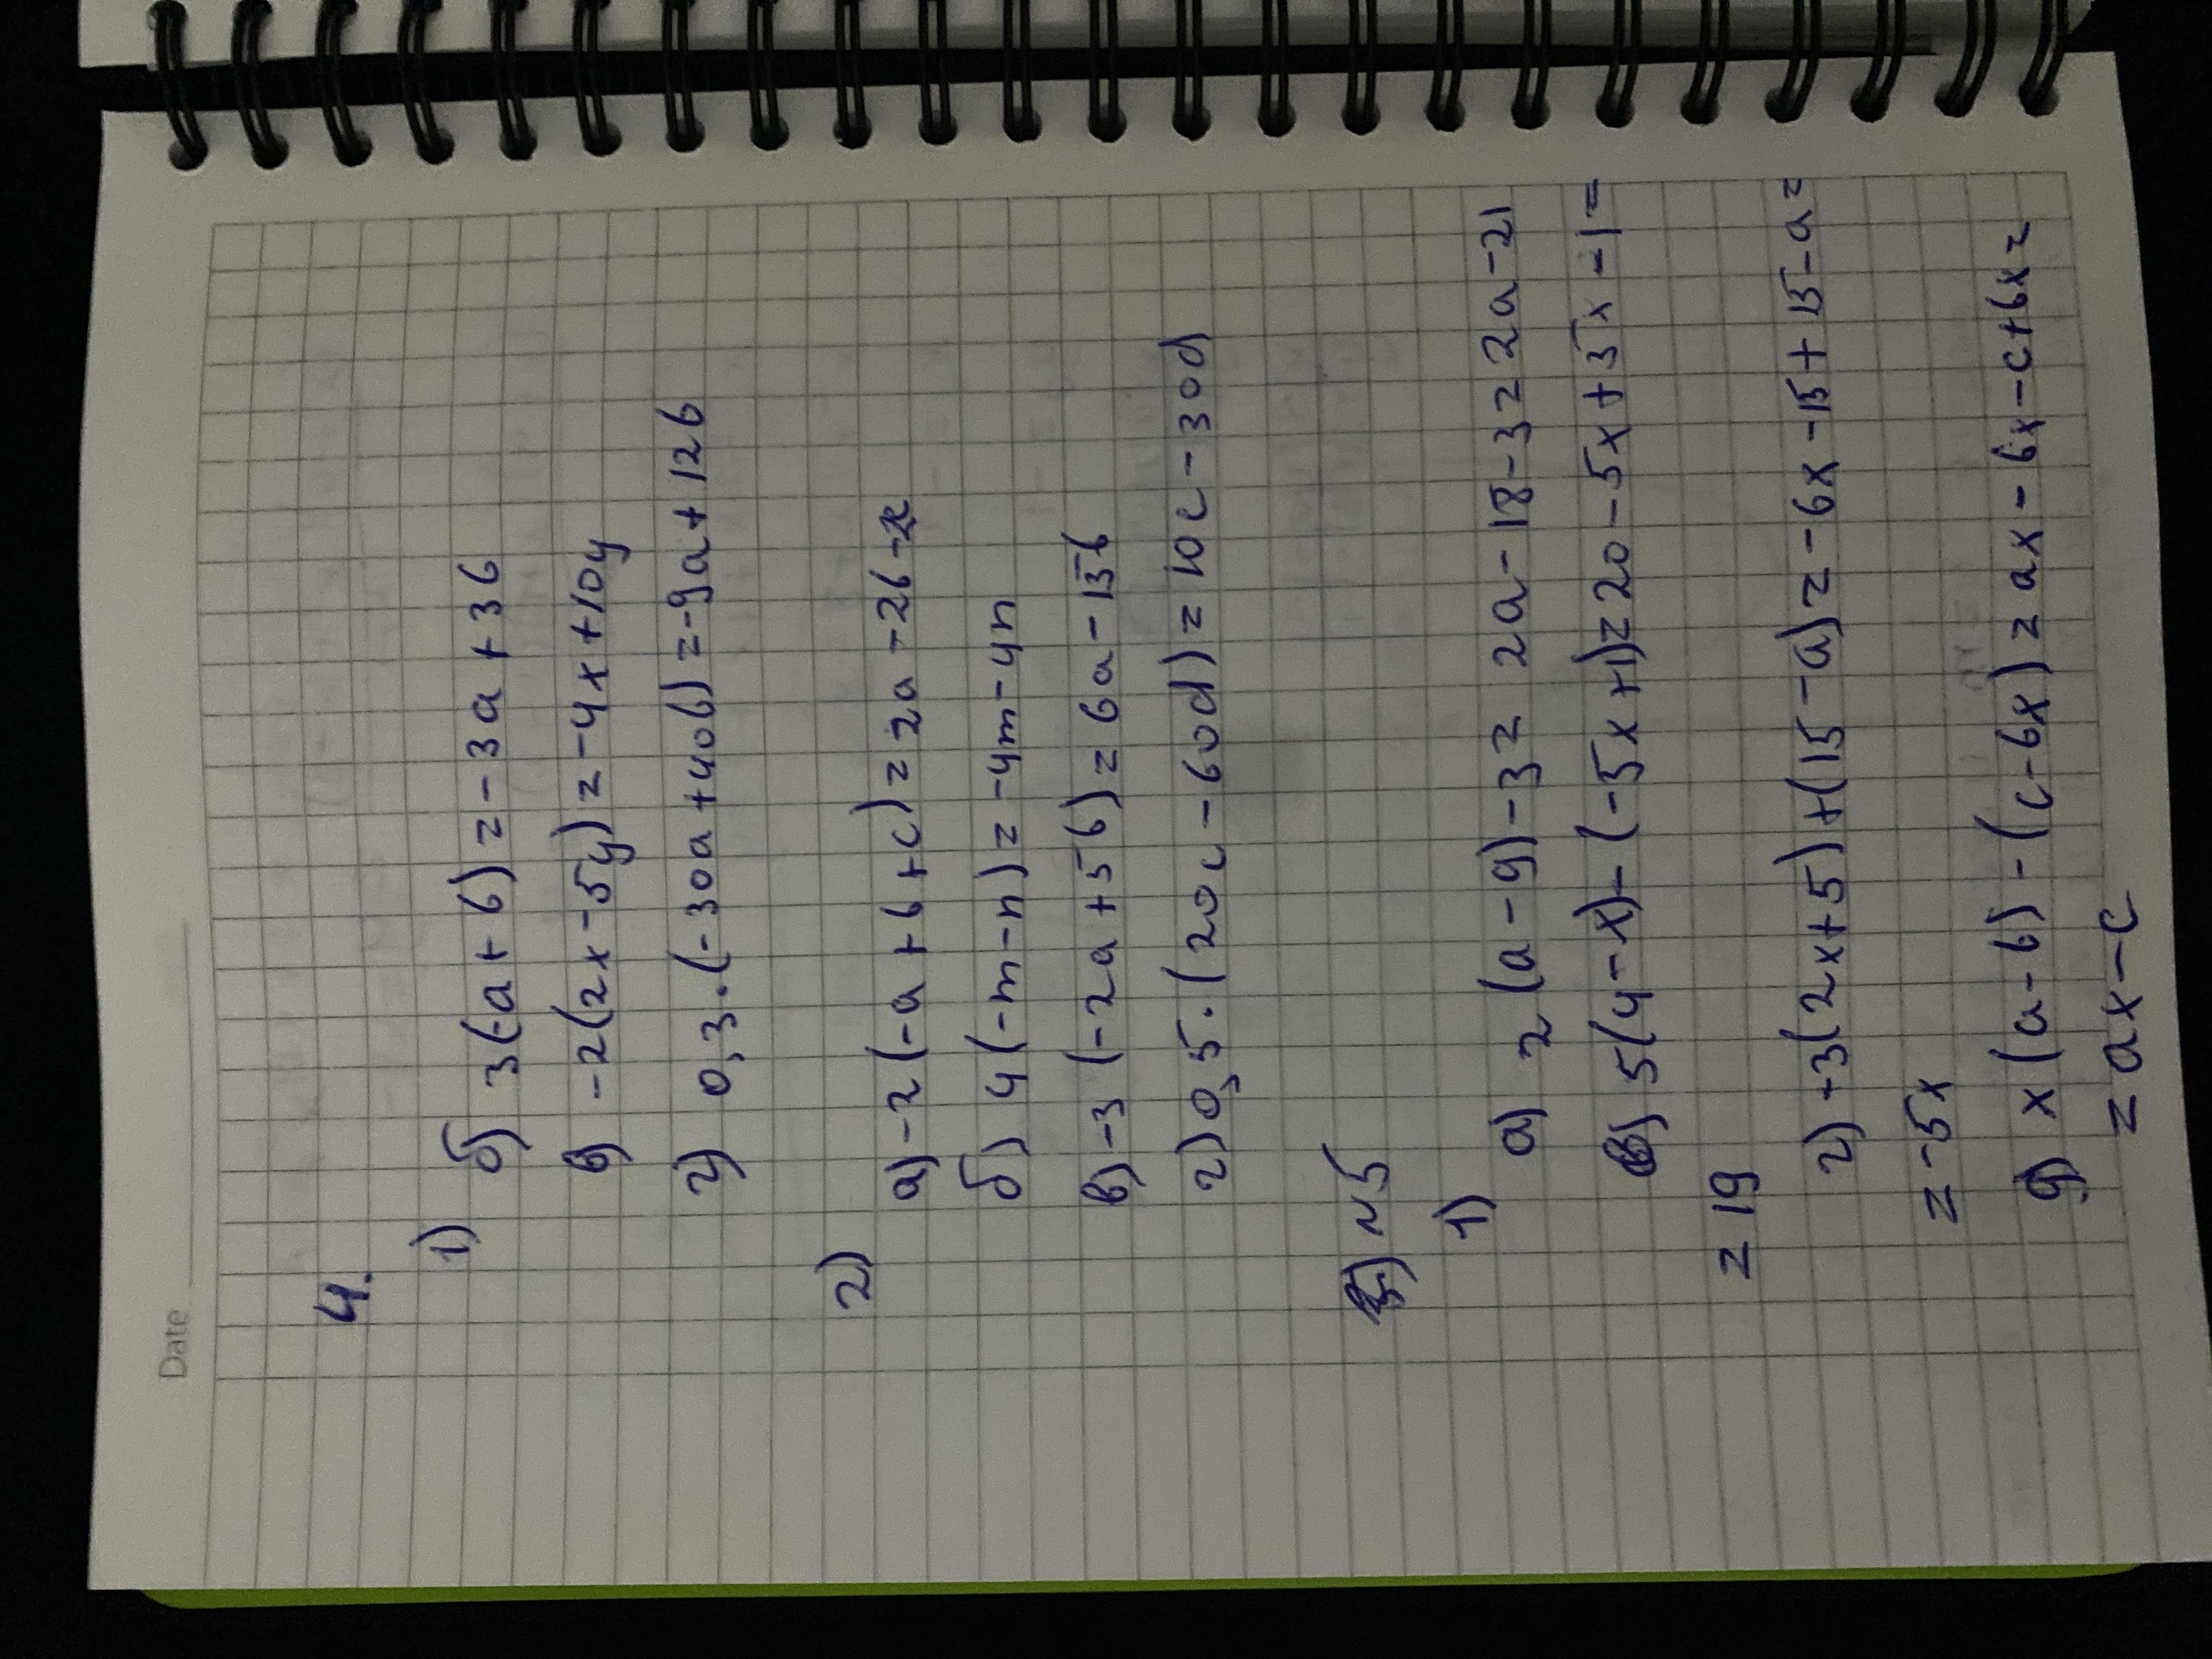 Date
4.
1)
б) 3(-a+b)=-3a+3b
в) -2(2x-5y)=-4x+10y
г) 0,3·(-30a+40b)=-9a+12b
2)
а) -2(-a+b+c)=2a-2b-2c
б) 4(-m-n)=-4m-4n
в) -3(-2a+5b)=6a-15b
г) 0,5·(20c-60d)=10c-30d
№5
1)
а) 2(a-9)-3=2a-18-3=2a-21
в) 5(4-x)-(-5x+1)=20-5x+5x-1=
=19
г) +3(2x+5)+(15-a)=-6x-15+15-a=
=-5x
д) x(a-6)-(c-6x)=ax-6x-c+6x=
=ax-c